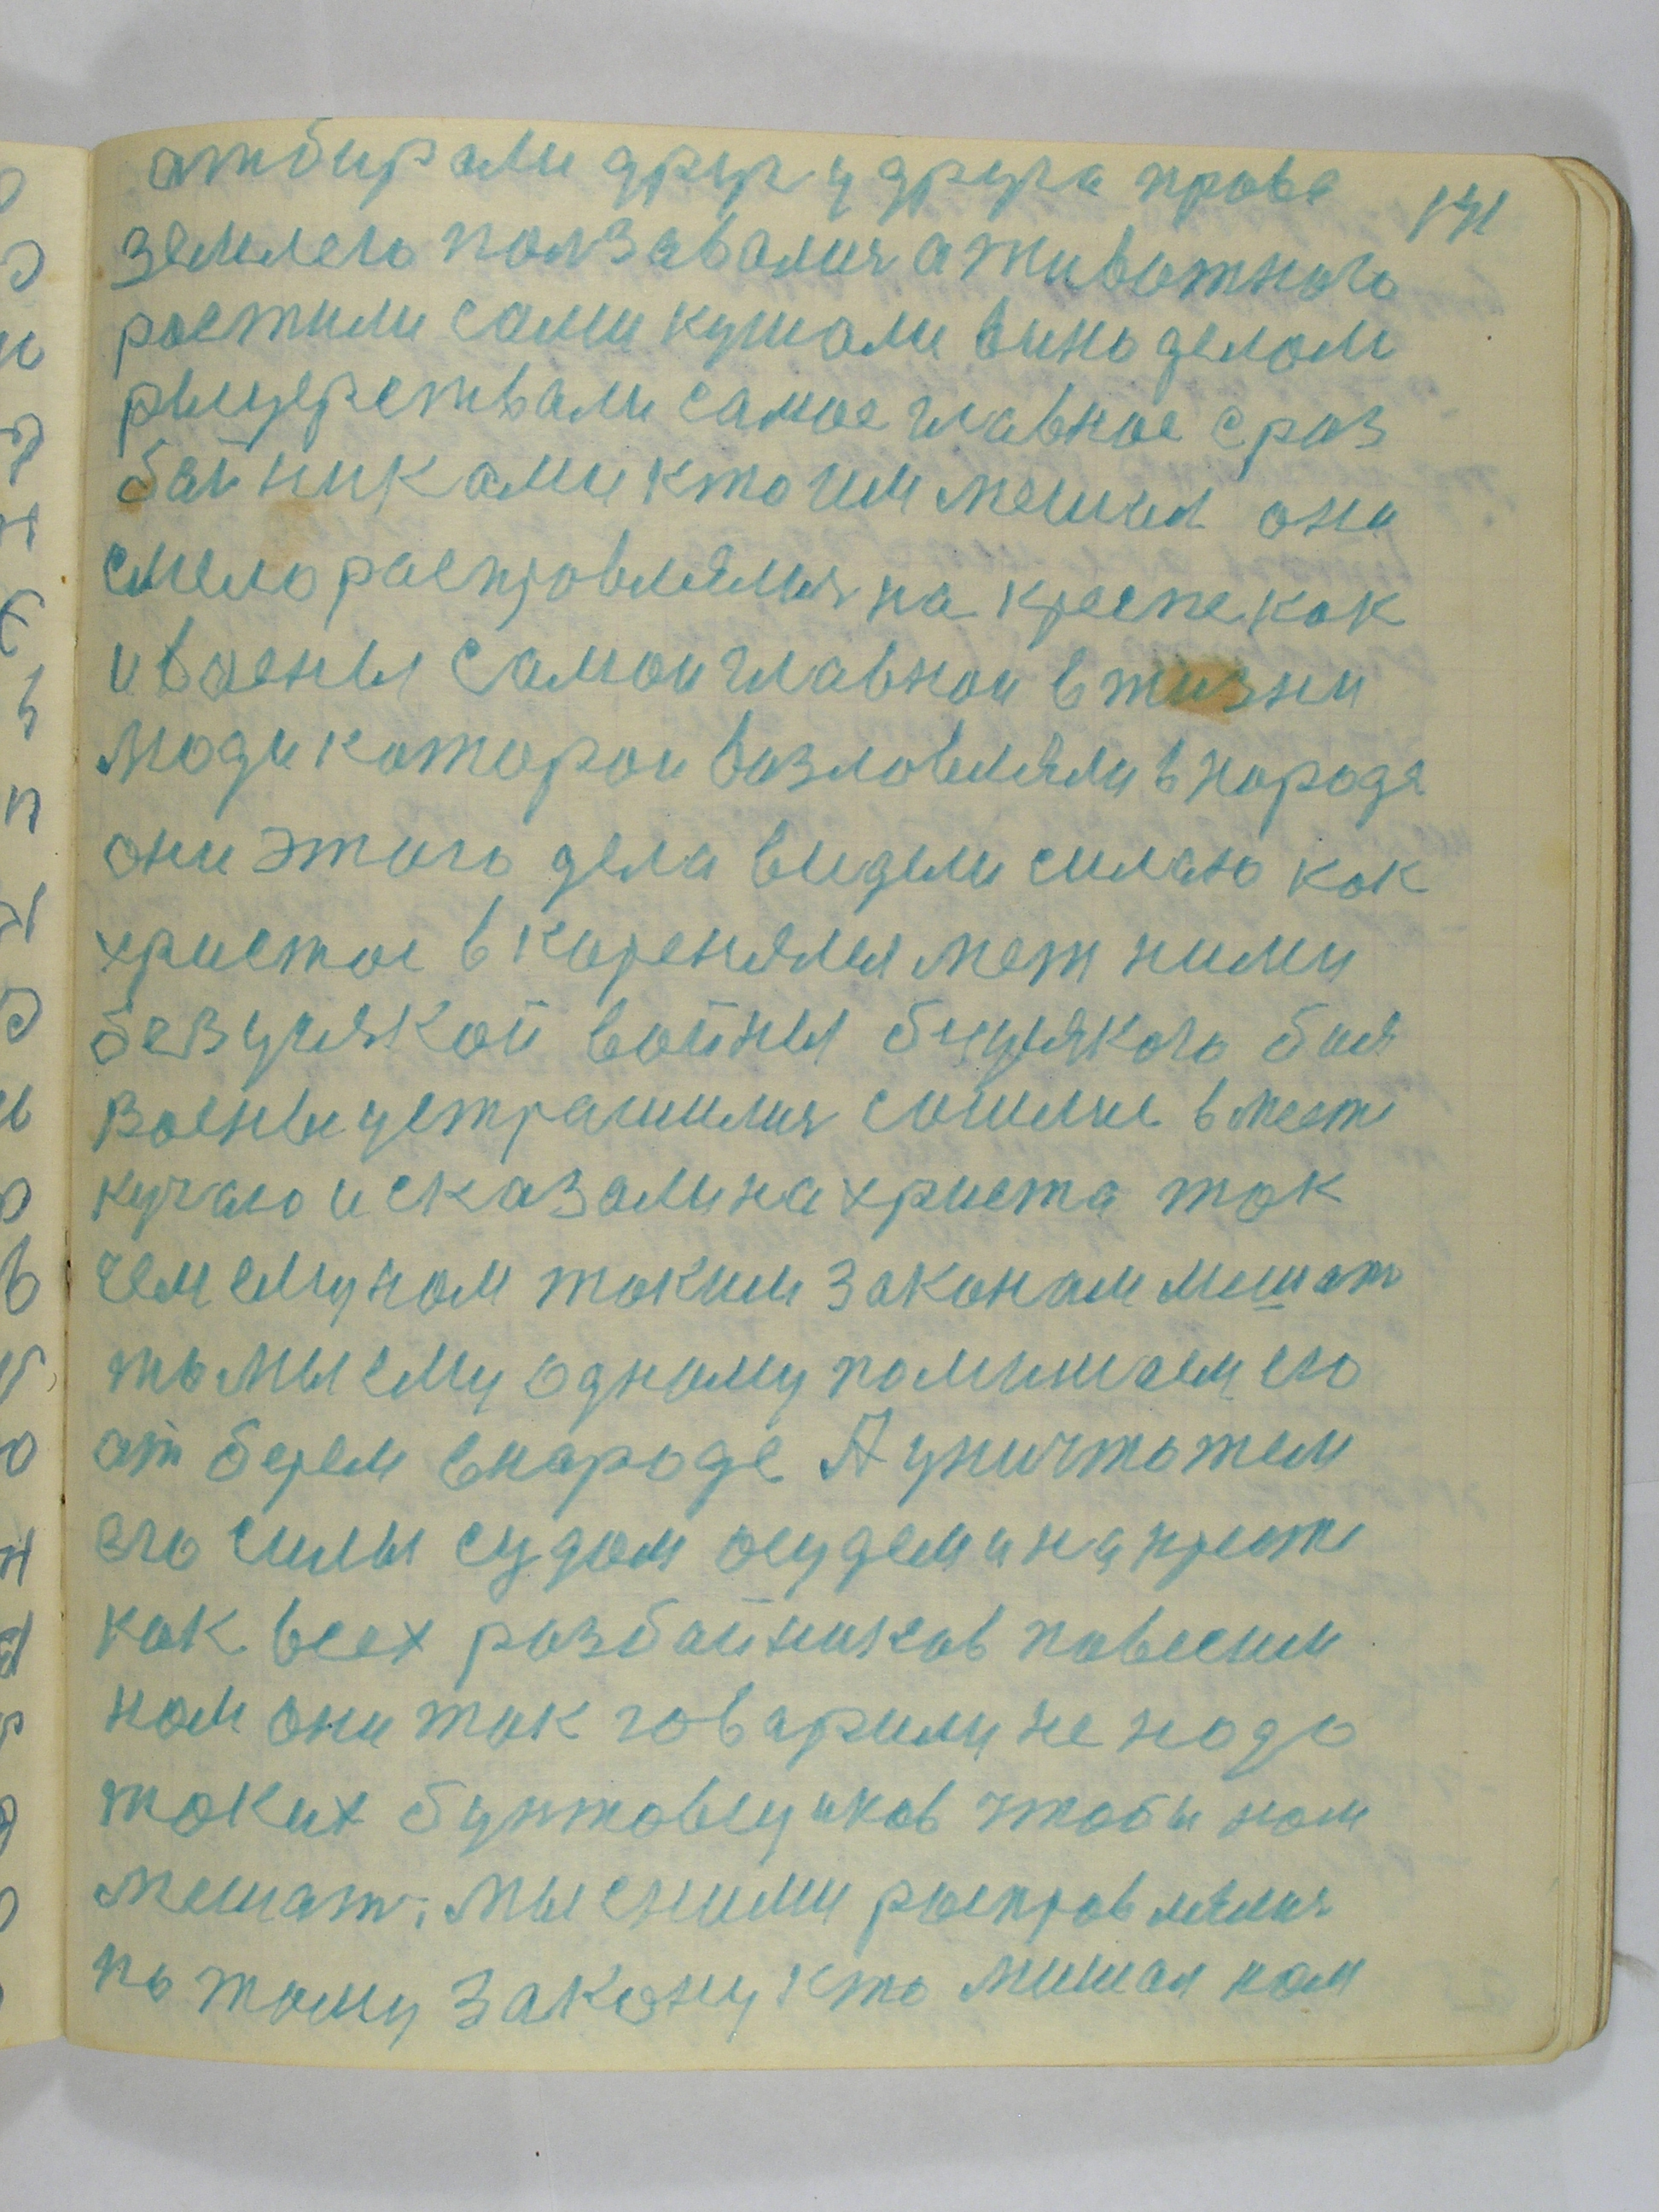 атбирали друг у друга права
131
землею ползавалися а животного
ростили сами кушали вино делоли
рыцерствали самое главное с роз
бойниками кто им мешил они
смело роспровлялися на кресте. как
и воены самои главнои в жизни
люди которои возловляли в народе
они этого дела видели силаю как
христос в коренялся меж ними
без усякой войны буз усякого боя
воены устрашилися сошлис вместе
кучаю и сказали на христа так
чем ему ном таким законам мешат
то мы ему одному помишаем его
атберем в народе А уничтожем
его силы судом осудем и на кресте
как всех розбойников повесим
ном они так говарили не нодо
токих бунтовщиков чтобы ном
мешат. мы с ними роспровлялися
по тому закону кто мишал нам